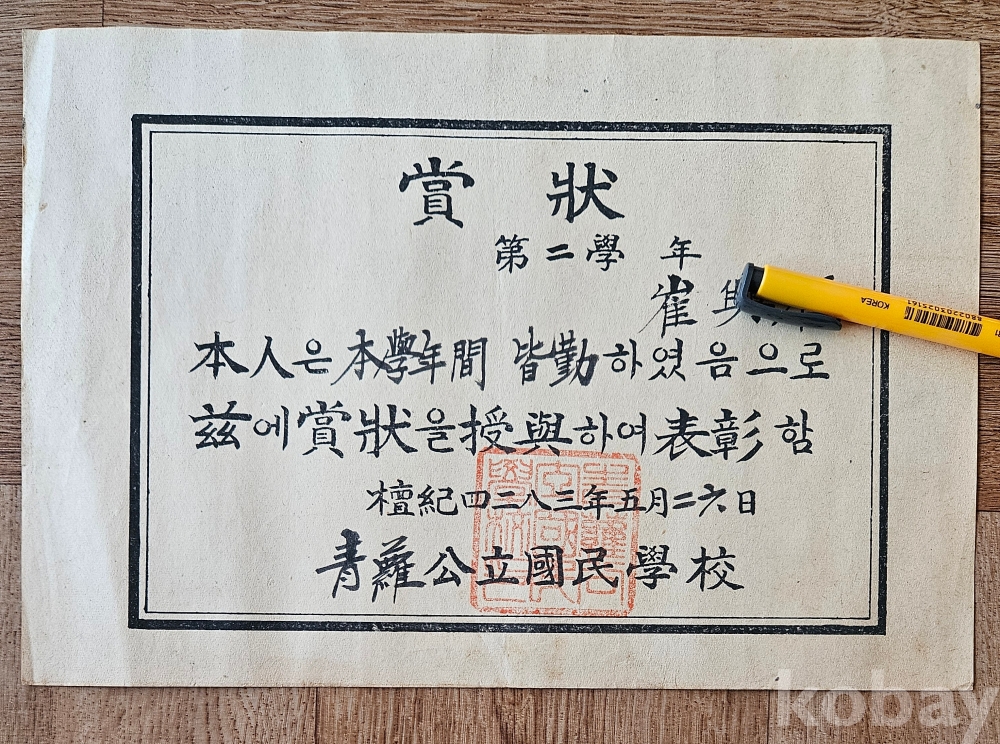 賞狀
第二學 年
崔
本人은 本學年間 皆勤하였음으로
玆에 賞狀을 授與하여 表彰함
檀紀四二八三年五月二六日
靑蘿公立國民學校
KOREA
8802203025161
kobay